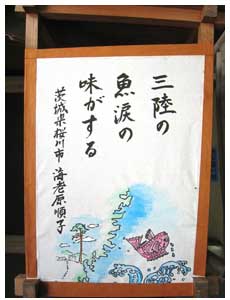 三陸の
魚涙の
味がする
茨城県桜川市 海老原順子